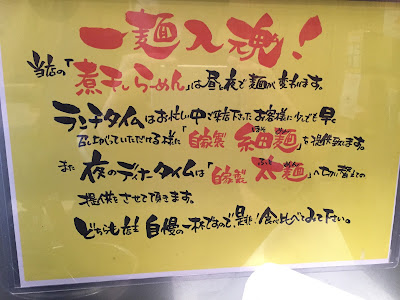 一麺入魂!
当店の「煮干しらーめん」は昼と夜で麺が変わります。
ランチタイムはお忙しい中ご来店下さったお客様に少しでも早く
召し上がっていただける様に「自家製 細麺」を提供致します。
また 夜のディナータイムは「自家製 太麺」へ切り替えての
提供とさせて頂きます。
どちらも店主 自慢の一杯ですので、是非!食べ比べてみて下さい。